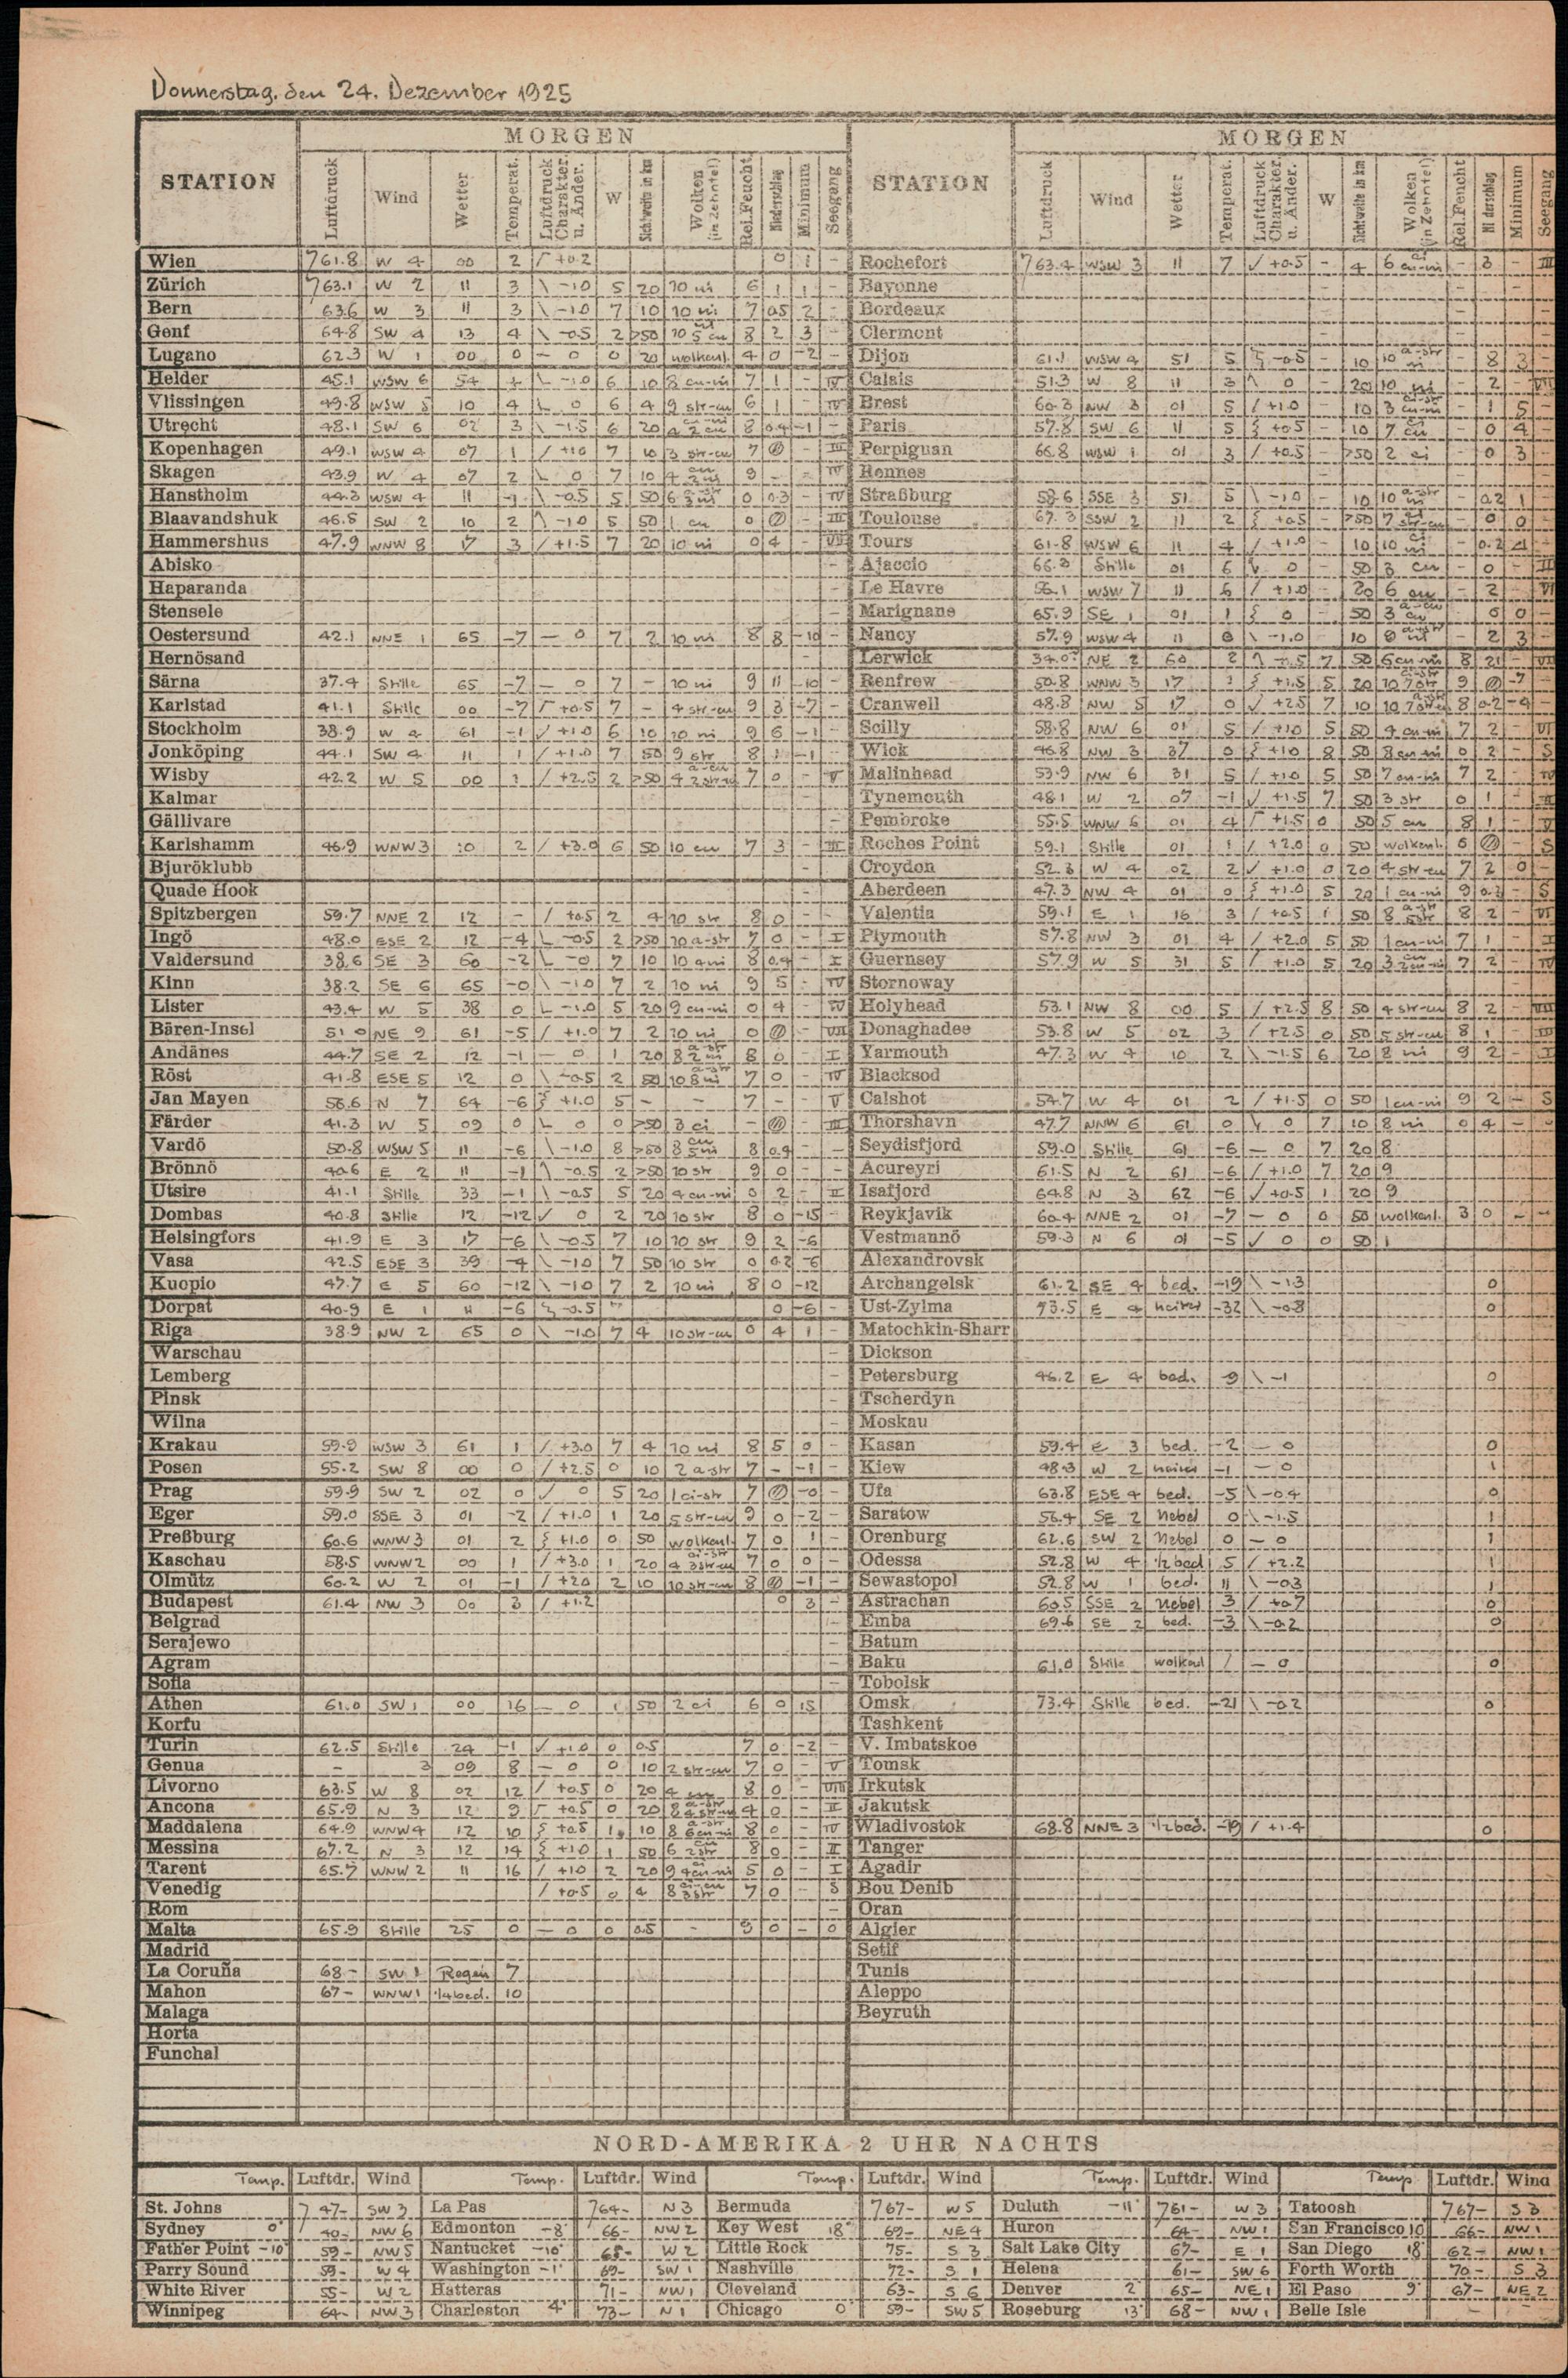 Donnerstag, den 24. Dezember 1925
MORGEN MORGEN
STATION Luftdruck Wind Wetter Temperat. Luftdruck Charakter. u. Änder. W Sichtweite in km Wolken (in Zehntel) Rel.Feucht. Niederschlag Minimum Seegang STATION Luftdruck Wind Wetter Temperat. Luftdruck Charakter. u. Änder. W Sichtweite in km Wolken (in Zehntel) Rel.Feucht Niederschlag Minimum Seegang
Wien 761.8 W 4 00 2 +0.2 0 1 - Rochefort 763.4 WSW 3 11 7 +0.5 - 4 6 cu-ni - 3 - III
Zürich 763.1 W 2 11 3 \ -1.0 5 20 10 ni 6 1 1 - Bayonne
Bern 63.6 W 3 11 3 \ -1.0 7 10 10 ni 7 0.5 2 - Bordeaux
Genf 64.8 SW 4 13 4 \ -0.5 2 >50 10 5 cu 8 2 3 - Clermont
Lugano 62.3 W 1 00 0 - 0 0 20 wolkenl. 4 0 -2 - Dijon 61.1 WSW 4 51 5 -0.5 - 10 10 a-str ni - 8 3 -
Helder 45.1 WSW 6 54 -1.0 6 10 8 cu-ni 7 1 - IV Calais 51.3 W 8 11 3 0 - 20 10 ni - 2 - VII
Vlissingen 49.8 WSW 5 10 4 0 6 4 9 str-cu 6 1 - IV Brest 60.3 NW 3 01 5 / +1.0 - 10 3 cu-ni - 1 5 -
Utrecht 48.1 SW 6 02 3 \ -1.5 6 20 4 2 cu 8 0.4 -1 - Paris 57.8 SW 6 11 5 +0.5 - 10 7 cu - 0 4 -
Kopenhagen 49.1 WSW 4 07 1 / +1.0 7 10 3 str-cu 7 - III Perpignan 66.8 WSW 1 01 3 / +0.5 - >50 2 ci - 0 3 -
Skagen 43.9 W 4 07 2 0 7 10 4 cu 2 ni 9 - - IV Rennes
Hanstholm 44.3 WSW 4 11 -1 \ -0.5 5 50 6 3 ni 0 0.3 - IV Straßburg 58.6 SSE 3 51 5 \ -1.0 - 10 10 a-str ni - 0.2 1 -
Blaavandshuk 46.5 SW 2 10 2 -1.0 5 50 1 cu 0 - III Toulouse 67.3 SSW 2 11 2 +0.5 - >50 7 str-cu - 0 0 -
Hammershus 47.9 WNW 8 17 3 / +1.5 7 20 10 ni 0 4 - VII Tours 61.8 WSW 6 11 4 / +1.0 - 10 10 ni - 0.2 -
Abisko - Ajaccio 66.3 Stille 01 6 0 - 50 3 cu - 0 - III
Haparanda - Le Havre 56.1 WSW 7 11 6 / +1.0 - 20 6 cu - 2 - VI
Stensele - Marignane 65.9 SE 1 01 1 0 - 50 3 a-cu cu - 0 0 -
Oestersund 42.1 NNE 1 65 -7 - 0 7 2 10 ni 8 8 -10 - Nancy 57.9 WSW 4 11 0 \ -1.0 10 8 a-str ni - 2 3 -
Hernösand - Lerwick 34.0 NE 2 60 2 7 50 6 cu-ni 8 21 - VII
Särna 37.4 Stille 65 -7 - 0 7 - 10 ni 9 11 -10 - Renfrew 50.8 WNW 3 17 1 +1.5 5 20 10 7 str 9 -7 -
Karlstad 41.1 Stille 00 -7 +0.5 7 - 4 str-cu 9 3 -7 - Cranwell 48.8 NW 5 17 0 +2.5 7 10 10 8 0.2 -4 -
Stockholm 38.9 W 4 61 -1 +1.0 6 10 10 ni 9 6 -1 - Scilly 58.8 NW 6 01 5 / +1.0 5 50 4 cu-ni 7 2 - VI
Jonköping 44.1 SW 4 11 1 / +1.0 7 50 9 str 8 1 -1 Wick 46.8 NW 3 37 0 +1.0 8 50 8 cu-ni 0 2 - S
Wisby 42.2 W 5 00 1 / +2.5 2 >50 4 7 0 - V Malinhead 53.9 NW 6 31 5 / +1.0 5 50 7 cu-ni 7 2 - IV
Kalmar - Tynemouth 48.1 W 2 07 -1 +1.5 7 50 3 str 0 1 - III
Gällivare - Pembroke 55.5 WNW 6 01 4 +1.5 0 50 5 cu 8 1 - V
Karlshamm 46.9 WNW 3 10 2 / +3.0 6 50 10 cu 7 3 - III Roches Point 59.1 Stille 01 1 / +2.0 0 50 wolkenl. 6 - S
Bjuröklubb - Croydon 52.3 W 4 02 2 +1.0 0 20 4 str-cu 7 2 0 -
Quade Hook - Aberdeen 47.3 NW 4 01 0 +1.0 5 20 1 cu-ni 9 0.3 - S
Spitzbergen 59.7 NNE 2 12 - / +0.5 2 4 10 str 8 0 - - Valentia 59.1 E 1 16 3 / +0.5 1 50 8 a-str 5 str 8 2 - VI
Ingö 48.0 ESE 2 12 -4 -0.5 2 >50 10 a-str 7 0 - I Plymouth 57.8 NW 3 01 4 / +2.0 5 50 1 cu-ni 7 1 - I
Valdersund 38.6 SE 3 60 -2 -0 7 10 10 8 0.4 - I Guernsey 57.9 W 5 31 5 / +1.0 5 20 3 2 cu-ni 7 2 - IV
Kinn 38.2 SE 6 65 -0 \ -1.0 7 2 10 ni 9 5 - IV Stornoway
Lister 43.4 W 5 38 0 -1.0 5 20 9 cu-ni 0 4 - IV Holyhead 53.1 NW 8 00 5 / +2.5 8 50 4 str-cu 8 2 - VIII
Bären-Insel 51.0 NE 9 61 -5 / +1.0 7 2 10 ni 0 - VII Donaghadee 53.8 W 5 02 3 / +2.5 0 50 5 str-cu 8 1 - III
Andänes 44.7 SE 2 12 -1 - 0 1 20 8 a-str 2 ni 8 0 - I Yarmouth 47.3 W 4 10 2 \ -1.5 6 20 8 ni 9 2 - I
Röst 41.8 ESE 5 12 0 \ -0.5 2 50 10 a-str 8 ni 7 0 - IV Blacksod
Jan Mayen 56.6 N 7 64 -6 +1.0 5 - - 7 - - V Calshot 54.7 W 4 01 2 / +1.5 0 50 1 cu-ni 9 2 - S
Färder 41.3 W 5 09 0 0 0 >50 3 ci - - III Thorshavn 47.7 NNW 6 61 0 0 7 10 8 ni 0 4 - -
Vardö 50.8 WSW 5 11 -6 \ -1.0 8 >50 8 cu 5 ni 8 0.4 - - Seydisfjord 59.0 Stille 61 -6 - 0 7 20 8
Brönnö 40.6 E 2 11 -1 -0.5 2 >50 10 str 9 0 - - Acureyri 61.5 N 2 61 -6 / +1.0 7 20 9
Utsire 41.1 Stille 33 -1 \ -0.5 5 20 4 cu-ni 0 2 - II Isafjord 64.8 N 3 62 -6 +0.5 1 20 9
Dombas 40.8 Stille 12 -12 0 2 20 10 str 8 0 -15 - Reykjavik 60.4 NNE 2 01 -7 - 0 0 50 wolkenl. 3 0 - -
Helsingfors 41.9 E 3 17 -6 \ -0.5 7 10 10 str 9 2 -6 Vestmannö 59.3 N 6 01 -5 0 0 50 1
Vasa 42.5 ESE 3 39 -4 \ -1.0 7 50 10 str 0 0.2 -6 Alexandrovsk
Kuopio 47.7 E 5 60 -12 \ -1.0 7 2 10 ni 8 0 -12 Archangelsk 61.2 SE 4 bed. -19 \ -1.3 0
Dorpat 40.9 E 1 11 -6 -0.5 0 -6 - Ust-Zylma 73.5 E 4 heiter -32 \ -0.8 0
Riga 38.9 NW 2 65 0 \ -1.0 7 4 10 str-cu 0 4 1 - Matochkin-Sharr
Warschau - Dickson
Lemberg - Petersburg 46.2 E 4 bed. -9 \ -1 0
Pinsk - Tscherdyn
Wilna - Moskau
Krakau 59.9 WSW 3 61 1 / +3.0 7 4 10 ni 8 5 0 - Kasan 59.4 E 3 bed. -2 - 0 0
Posen 55.2 SW 8 00 0 / +2.5 0 10 2 a-str 7 - -1 - Kiew 48.3 W 2 heiter -1 - 0 1
Prag 59.9 SW 2 02 0 0 5 20 1 ci-str 7 -0 - Ufa 63.8 ESE 4 bed. -5 \ -0.4 0
Eger 59.0 SSE 3 01 -2 / +1.0 1 20 5 str-cu 9 0 -2 - Saratow 56.4 SE 2 Nebel 0 \ -1.5 1
Preßburg 60.6 WNW 3 01 2 +1.0 0 50 wolkenl. 7 0 1 - Orenburg 62.6 SW 2 Nebel 0 - 0 1
Kaschau 58.5 WNW 2 00 1 / +3.0 1 20 4 ci-str 3 str-cu 7 0 0 - Odessa 52.8 W 4 1/2 bed 5 / +2.2 1
Olmütz 60.2 W 2 01 -1 / +2.0 2 10 10 str-cu 8 -1 - Sewastopol 52.8 W 1 bed. 11 \ -0.3 1
Budapest 61.4 NW 3 00 3 / +1.2 0 3 - Astrachan 60.5 SSE 2 Nebel 3 / +0.7 0
Belgrad - Emba 69.6 SE 2 bed. -3 \ -0.2 0
Serajewo - Batum
Agram - Baku 61.0 Stille wolkenl - 0 0
Sofia - Tobolsk
Athen 61.0 SW 1 00 16 - 0 1 50 2 ci 6 0 15 Omsk 73.4 Stille bed. -21 \ -0.2 0
Korfu Tashkent
Turin 62.5 Stille 24 -1 +1.0 0 0.5 7 0 -2 - V. Imbatskoe
Genua - 3 09 8 - 0 0 10 2 str-cu 7 0 - V Tomsk
Livorno 63.5 W 8 02 12 / +0.5 0 20 4 cu 8 0 - VIII Irkutsk
Ancona 65.9 N 3 12 9 +0.5 0 20 8 a-str 4 str-cu 4 0 - II Jakutsk
Maddalena 64.9 WNW 4 12 10 +0.5 1 10 8 a-str 6 cu-ni 8 0 - IV Wladivostok 68.8 NNE 3 1/2 bed. -19 / +1.4 0
Messina 67.2 N 3 12 14 +1.0 1 50 6 2 str 8 0 - II Tanger
Tarent 65.7 WNW 2 11 16 / +1.0 2 20 9 4 cu-ni 5 0 - I Agadir
Venedig / +0.5 0 4 8 ci-cu 3 str 7 0 - S Bou Denib
Rom - Oran
Malta 65.9 Stille 25 0 - 0 0 0.5 - 9 0 - 0 Algier
Madrid Setif
La Coruña 68- SW 1 Regen 7 Tunis
Mahon 67- WNW 1 1/4 bed. 10 Aleppo
Malaga Beyruth
Horta
Funchal
NORD-AMERIKA 2 UHR NACHTS
Temp. Luftdr. Wind Temp. Luftdr. Wind Temp. Luftdr. Wind Temp. Luftdr. Wind Temp Luftdr. Wind
St. Johns 747- SW 3 La Pas 764- N 3 Bermuda 767- W 5 Duluth -11° 761- W 3 Tatoosh 767- S 3
Sydney 0° 40- NW 6 Edmonton -8° 66- NW 2 Key West 18° 69- NE 4 Huron 64- NW 1 San Francisco 10° 66- NW 1
Father Point -10° 59- NW 5 Nantucket -10° 65- W 2 Little Rock 75- S 3 Salt Lake City 67- E 1 San Diego 18° 62- NW 1
Parry Sound 59- W 4 Washington -1° 69- SW 1 Nashville 72- S 1 Helena 61- SW 6 Forth Worth 70- S 3
White River 55- W 2 Hatteras 71- NW 1 Cleveland 63- S 6 Denver 2° 65- NE 1 El Paso 9° 67- NE 2
Winnipeg 64- NW 3 Charleston 4° 73- N 1 Chicago 0° 59- SW 5 Roseburg 13° 68- NW 1 Belle Isle - -